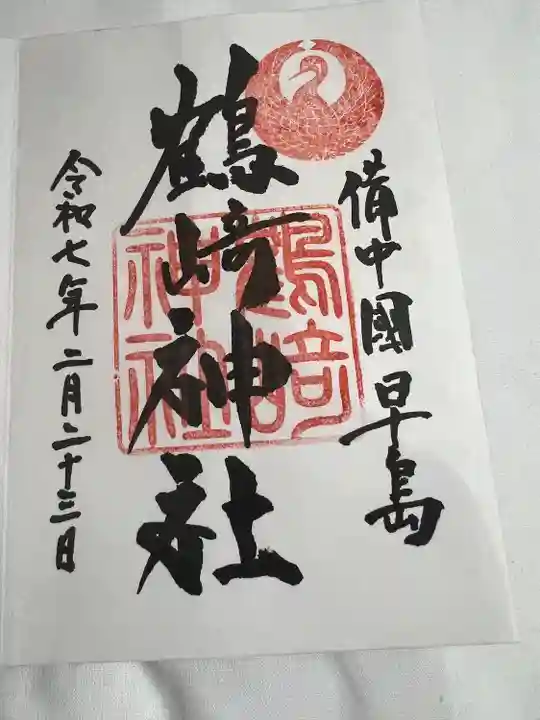 備中國早島
鶴﨑神社
鶴﨑神社
令和七年二月二十三日